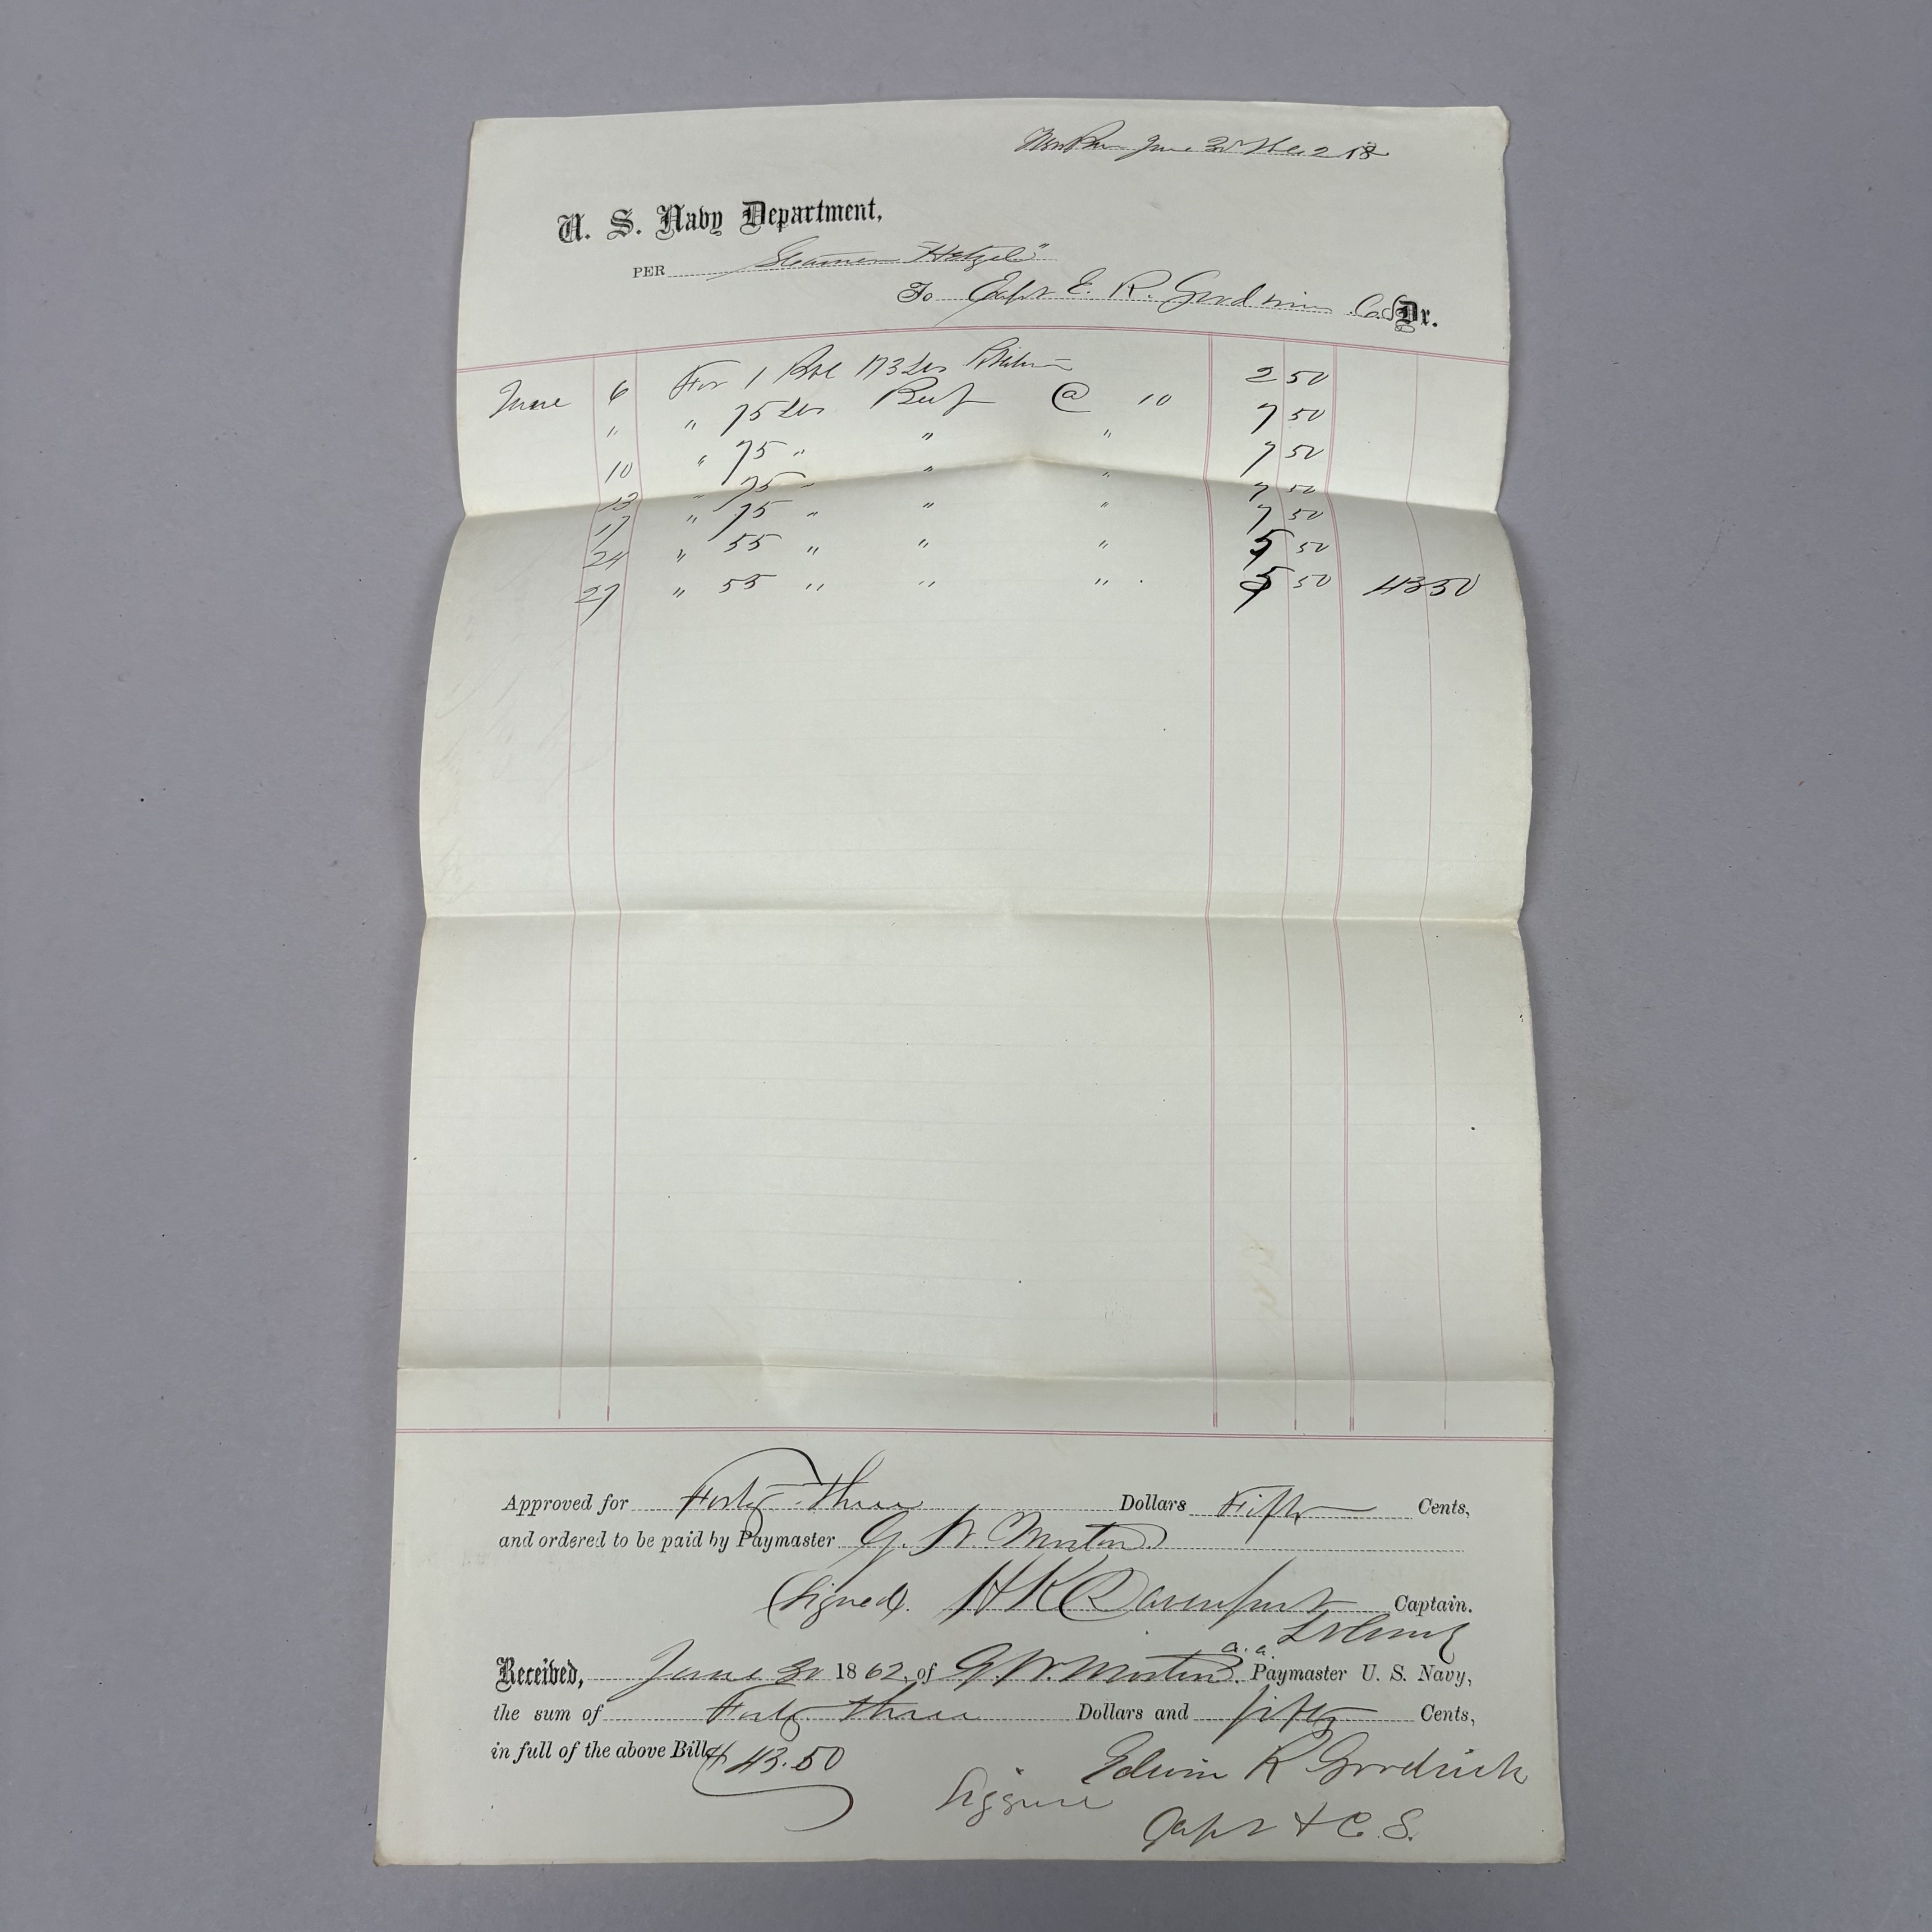 June 30th
U. S. Navy Department,
PER Steamer "Hetzel"
To Capt E. R. Goodwin C.S. Dr.
June 6 For 1 Bbl 173 Lbs 2 50
" " 75 Lbs Beef @ 10 7 50
10 " 75 " " " 7 50
13 " 75 " " " 7 50
17 " 75 " " " 7 50
24 " 55 " " " 5 50
27 " 55 " " " 5 50 43 50
Approved for Forty-three Dollars Fifty Cents,
and ordered to be paid by Paymaster G. W. Morton
(Signed). H K Davenport Captain.
Received, June 30 1862, of G. W. Morton a. a. Paymaster U. S. Navy,
the sum of Forty three Dollars and fifty Cents,
in full of the above Bill $ 43.50
Edwin R Goodrich
Signed
Capt & C. S.